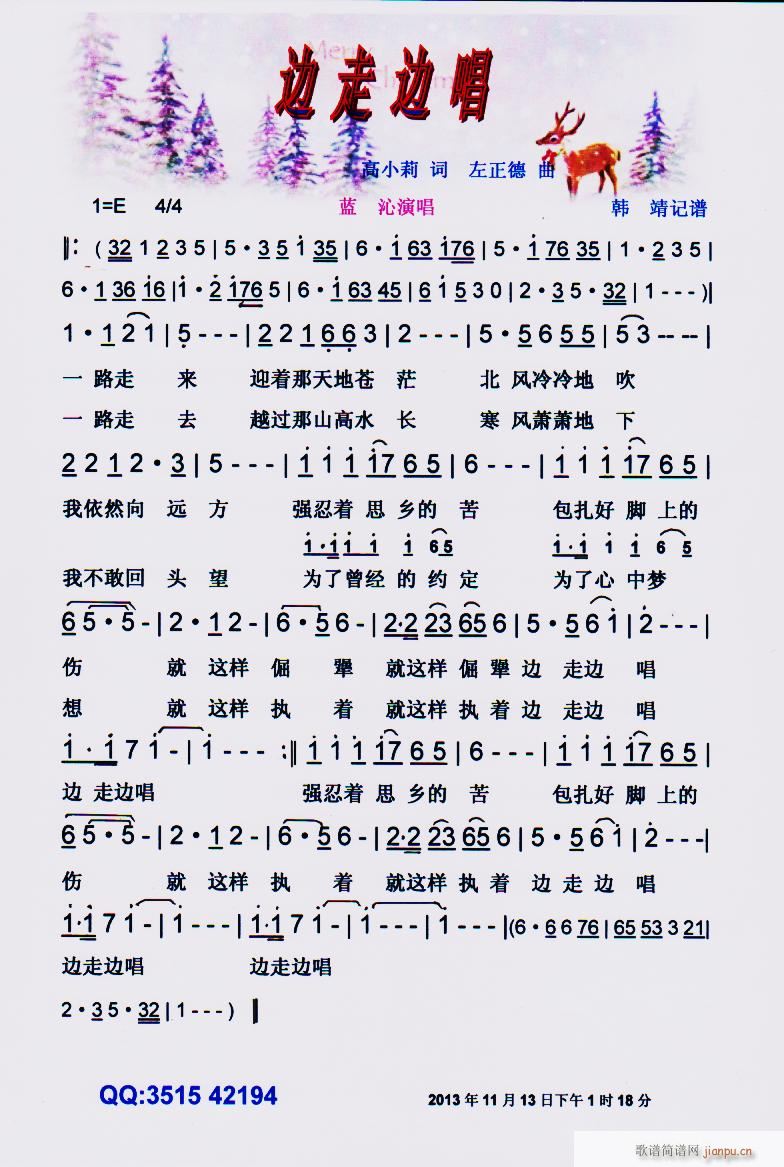 Merry
Christmas
边走边唱
高小莉 词 左正德 曲
1=E 4/4 蓝 沁演唱 韩 靖记谱
‖: ( 32 1 2 3 5 | 5 · 3 5 i 35 | 6 · i 63 i76 | 5 · i 76 35 | 1 · 2 3 5 |
6 · 1 36 i6 | i · 2 i76 5 | 6 · i 63 45 | 6 i 5 3 0 | 2 · 3 5 · 32 | 1 - - - )|
1 · 1 2 1 | 5 - - - | 2 2 1 6 6 3 | 2 - - - | 5 · 5 6 5 5 | 5 3 -- -- |
一 路走 来 迎着那天地苍 茫 北 风冷冷地 吹
一 路走 去 越过那山高水 长 寒 风萧萧地 下
2 2 1 2 · 3 | 5 - - - | i i i i7 6 5 | 6 - - - | i i i i7 6 5 |
我依然向 远 方 强忍着 思 乡的 苦 包扎好 脚 上的
i · i i i i 65 i · i i i 6 5
我不敢回 头 望 为了曾经 的 约 定 为了心 中梦
6 5 · 5 - | 2 · 1 2 - | 6 · 5 6 - | 2·2 23 65 6 | 5 · 5 6 i | 2 - - - |
伤 就 这样 倔 犟 就这样 倔犟边 走边 唱
想 就 这样 执 着 就这样 执着边 走边 唱
i · i 7 i - | i - - - :‖ i i i i7 6 5 | 6 - - - | i i i i7 6 5 |
边 走边唱 强忍着 思 乡的 苦 包扎好 脚 上的
6 5 · 5 - | 2 · 1 2 - | 6 · 5 6 - | 2·2 23 65 6 | 5 · 5 6 i | 2 - - -|
伤 就 这样 执 着 就这样 执着 边 走 边 唱
i·i 7 i - | i - - - | i·i 7 i - | i - - - | i - - - |(6 · 6 6 76 | 65 53 3 21|
边走边唱 边走边唱
2 · 3 5 · 32 | 1 - - - ) ‖
QQ:3515 42194 2013 年 11 月 13 日下午 1 时 18 分
歌谱简谱网 jianpu.cn